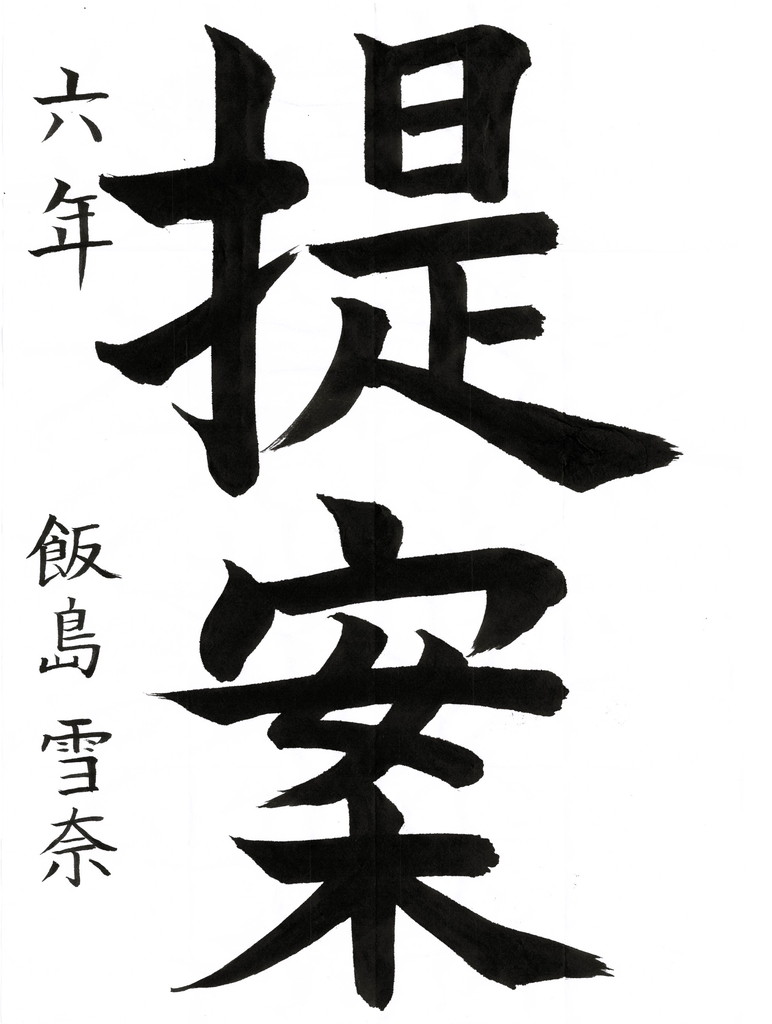 提案
六年 飯島 雪奈